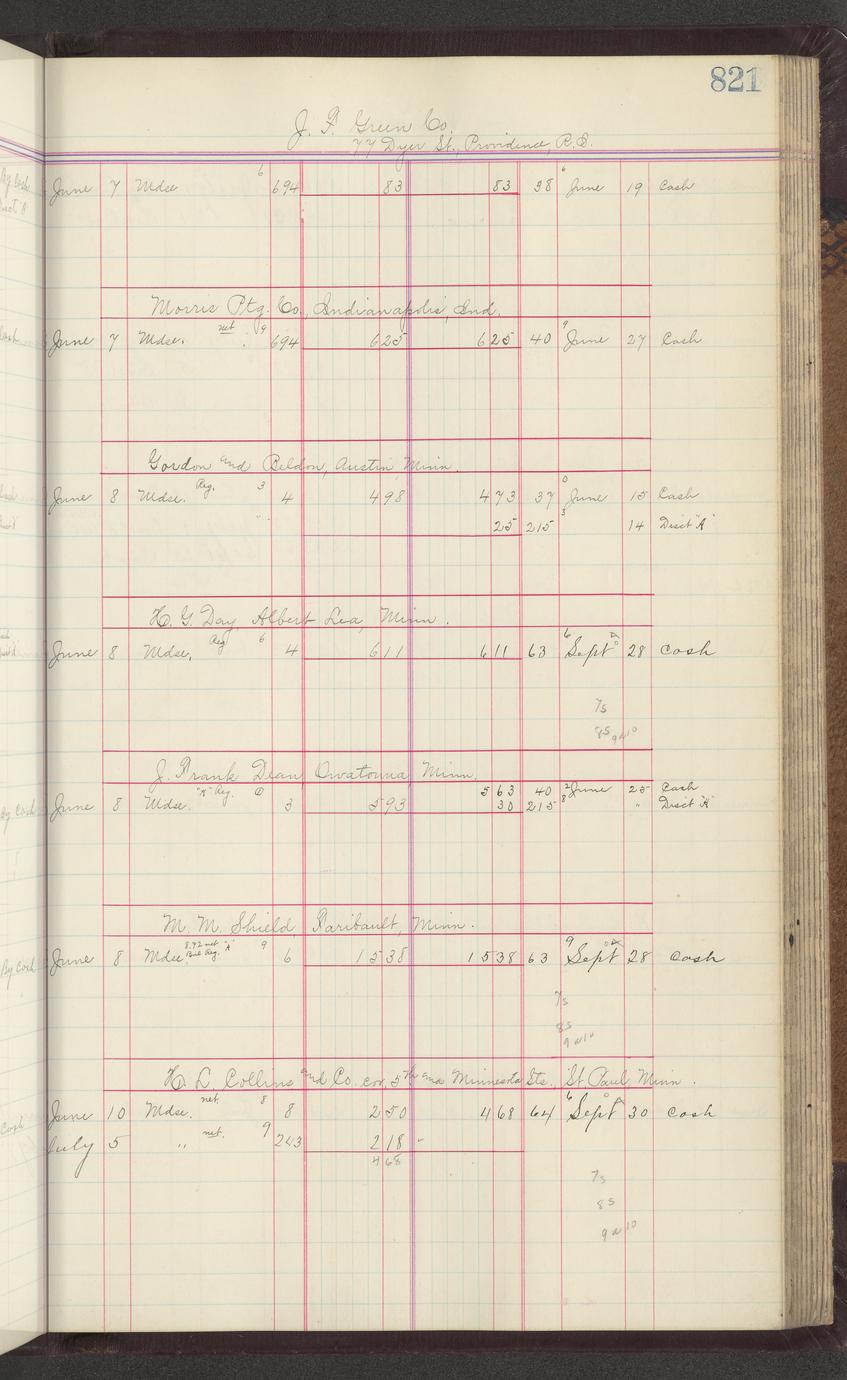 821
J. F. Green Co.
77 Dyer St., Providence, R.I.
June 7 Mdse 6 694 83 83 38 6 June 19 Cash
Morris Ptg. Co., Indianapolis, Ind.
June 7 Mdse. net 9 694 625 625 40 9 June 27 Cash
Gordon and Beldon, Austin, Minn.
June 8 Mdse. Reg. 3 4 498 473 37 0 June 15 Cash
25 215 3 14 Disct "A"
H. G. Day, Albert Lea, Minn.
June 8 Mdse. Reg 6 4 611 611 63 6 Sept 28 Cash
7s
8s 9 w 10
J. Frank Dean, Owatonna, Minn.
June 8 Mdse. "A" Reg. 3 593 563 40 2 June 25 Cash
30 215 8 " Disct "A"
M. M. Shield, Faribault, Minn.
June 8 Mdse. 8.92 net "A" Bal Reg. 9 6 1538 1538 63 9 Sept 28 Cash
7s
8s
9 w 10
H. L. Collins and Co. cor. 5th and Minnesota Sts. St. Paul, Minn.
June 10 Mdse. net. 8 8 250 468 64 6 Sept 30 Cash
July 5 " net. 9 243 218
468
7s
8s
9 w 10